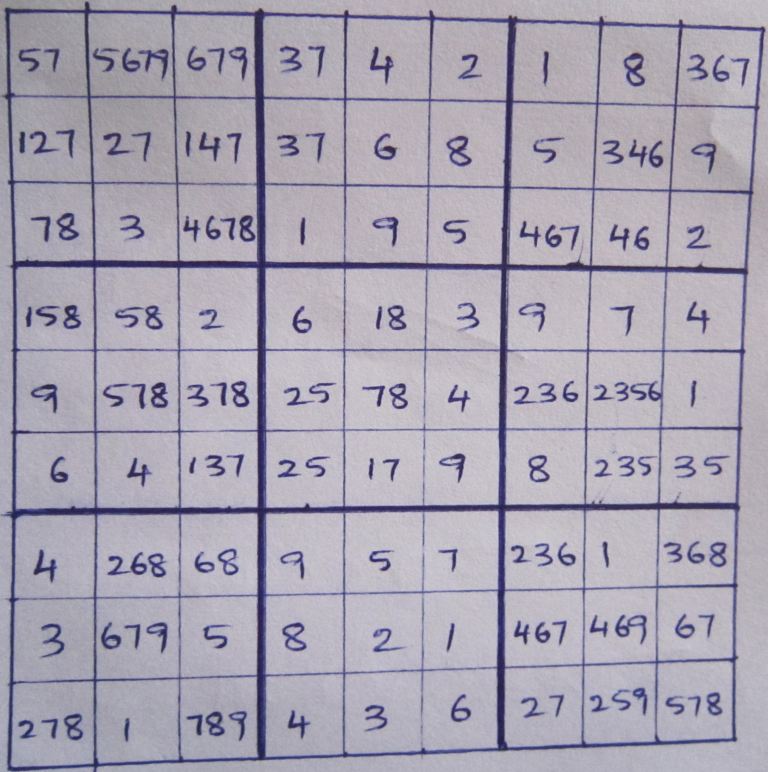 57 5679 679 37 4 2 1 8 367
127 27 147 37 6 8 5 346 9
78 3 4678 1 9 5 467 46 2
158 58 2 6 18 3 9 7 4
9 578 378 25 78 4 236 2356 1
6 4 137 25 17 9 8 235 35
4 268 68 9 5 7 236 1 368
3 679 5 8 2 1 467 469 67
278 1 789 4 3 6 27 259 578